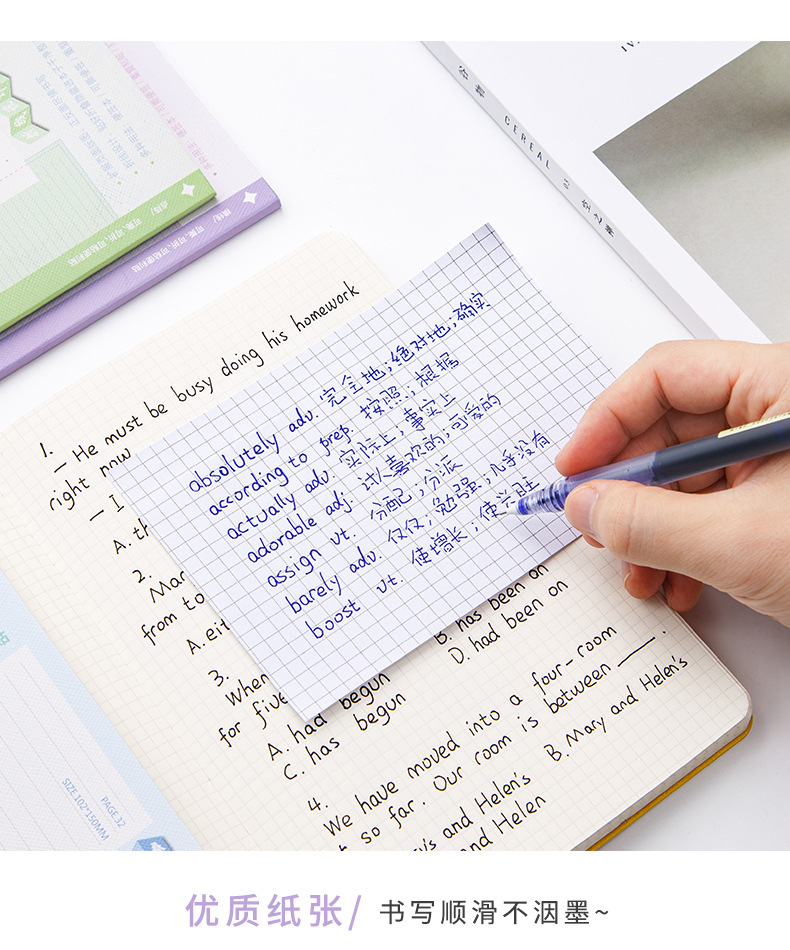 CEREAL
1.
— He must be busy doing his homework
right now
— I
A. th
2.
Mar
from to
A. eit
3.
When
for five
A. had begun
B. has been on
C. has begun
D. had been on
4.
We have moved into a four-room
so far. Our room is between ____.
's and Helen's B. Mary and Helen's
and Helen
absolutely adv. 完全地;绝对地;确实
according to prep. 按照;根据
actually adv. 实际上;事实上
adorable adj. 讨人喜欢的;可爱的
assign vt. 分配;分派
barely adv. 仅仅;勉强;几乎没有
boost vt. 使增长;使兴旺
PAGE.32
SIZE.102*150MM
优质纸张/ 书写顺滑不洇墨~